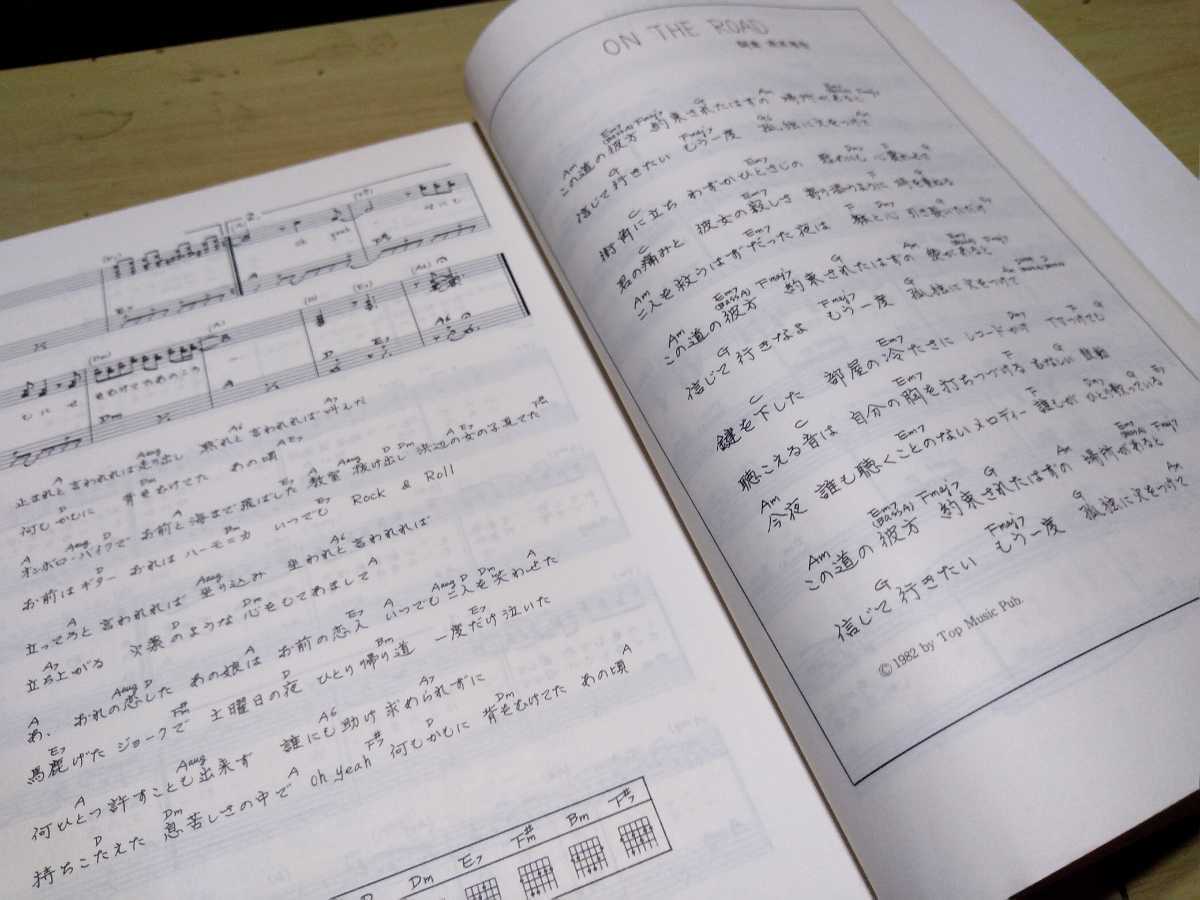 oh yeah
せにも
もにせ
せむけてたあのころ
A Aaug A6 A7
止まれと言われれば走り出し 黙れと言われれば叫んだ
D Dm A E7
何もかもに 背をむけてた あの頃
A Aaug D A Aaug D Dm A E7 F#m
オンボロ・バイクで お前と海まで飛ばした 教室抜け出し 浜辺の女の子見てた
D Dm E7
お前はギター おれはハーモニカ いつでも Rock & Roll
A Aaug A6
立ってろと言われれば 坐り込み 坐われと言われれば
A7 D Dm A
立ち上がる 火薬のような心をもてあまして
A Aaug D A E7 A Aaug D Dm A
あゝ おれの恋した あの娘は お前の恋人 いつでも二人を笑わせた
E7 F#m D Bm E7
馬鹿げたジョークで 土曜日の夜 ひとり帰り道 一度だけ泣いた
A Aaug A6 A7
何ひとつ許すことも出来ず 誰にも助け求められずに
D Dm A F#m D Dm A
持ちこたえた 息苦しさの中で Oh yeah 何もかもに 背をむけてた あの頃
D Dm E7 F#m Bm F#7
ON THE ROAD
Am Em7(Bass A) Fmaj7 G Am Em7(Bass A) Fmaj7
この道の彼方 約束されたはずの 場所があると
G Fmaj7 G6 Am
信じて行きたい もう一度 孤独に火をつけて
C Em7 Dm7 G
街角に立ち わずかひとさじの
C Em7 F G
君の痛みと 彼女の寂しさ 寄り添うように 肩を重ねる
Am Em7 F Dm7 G
二人を救うはずだった夜は
Am Em7(Bass A) Fmaj7 G Am Em7(Bass A) Fmaj7
この道の彼方 約束されたはずの 愛があると
G Fmaj7 G Am
信じて行きなよ もう一度 孤独に火をつけて
C Em7 Dm7 F G
鍵を下した 部屋の冷たさに レコードかけ
C Em7 F G
聴こえる音は 自分の胸を打ちつづける
Am Em7 F Dm7 G E7
今夜 誰も聴くことのないメロディー 誰もが ひとり歌っている
Am Em7(Bass A) Fmaj7 G Am Em7(Bass A) Fmaj7
この道の彼方 約束されたはずの 場所があると
G Fmaj7 G Am
信じて行きたい もう一度 孤独に火をつけて
© 1982 by Top Music Pub.